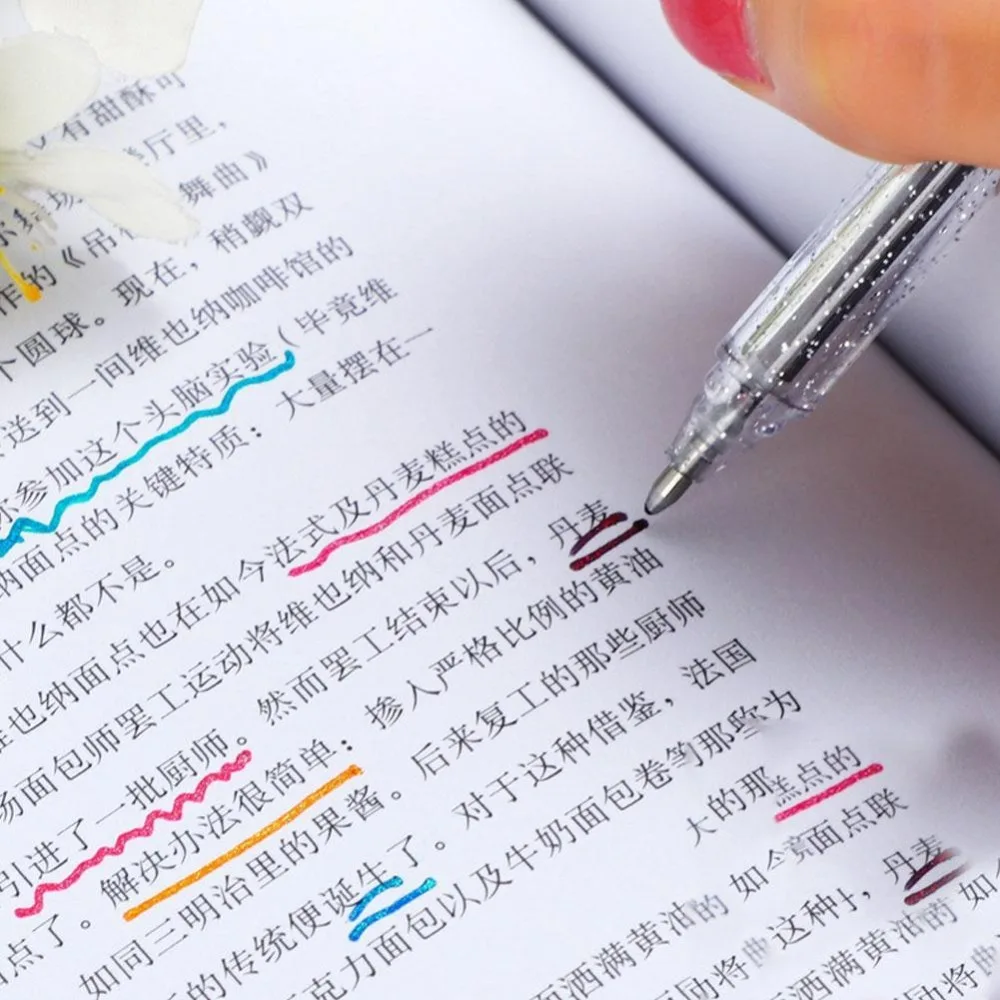 有甜酥可
厅里，
舞曲》
作的《吊
个圆球。现在，稍觑双
送到一间维也纳咖啡馆的
你参加这个头脑实验（毕竟维
纳面点的关键特质：大量摆在一
什么都不是。
维也纳面点也在如今法式及丹麦糕点的
场面包师罢工运动将维也纳和丹麦面点联
引进了一批厨师。然而罢工结束以后，丹麦
点了。解决办法很简单：掺入严格比例的黄油
如同三明治里的果酱。后来复工的那些厨师
的传统便诞生了。对于这种借鉴，法国
克力面包以及牛奶面包卷 那 为
大的那 糕点的
如今 面点联
洒满黄油的 这种 ，丹麦
励将 洒满黄油的 如
励将